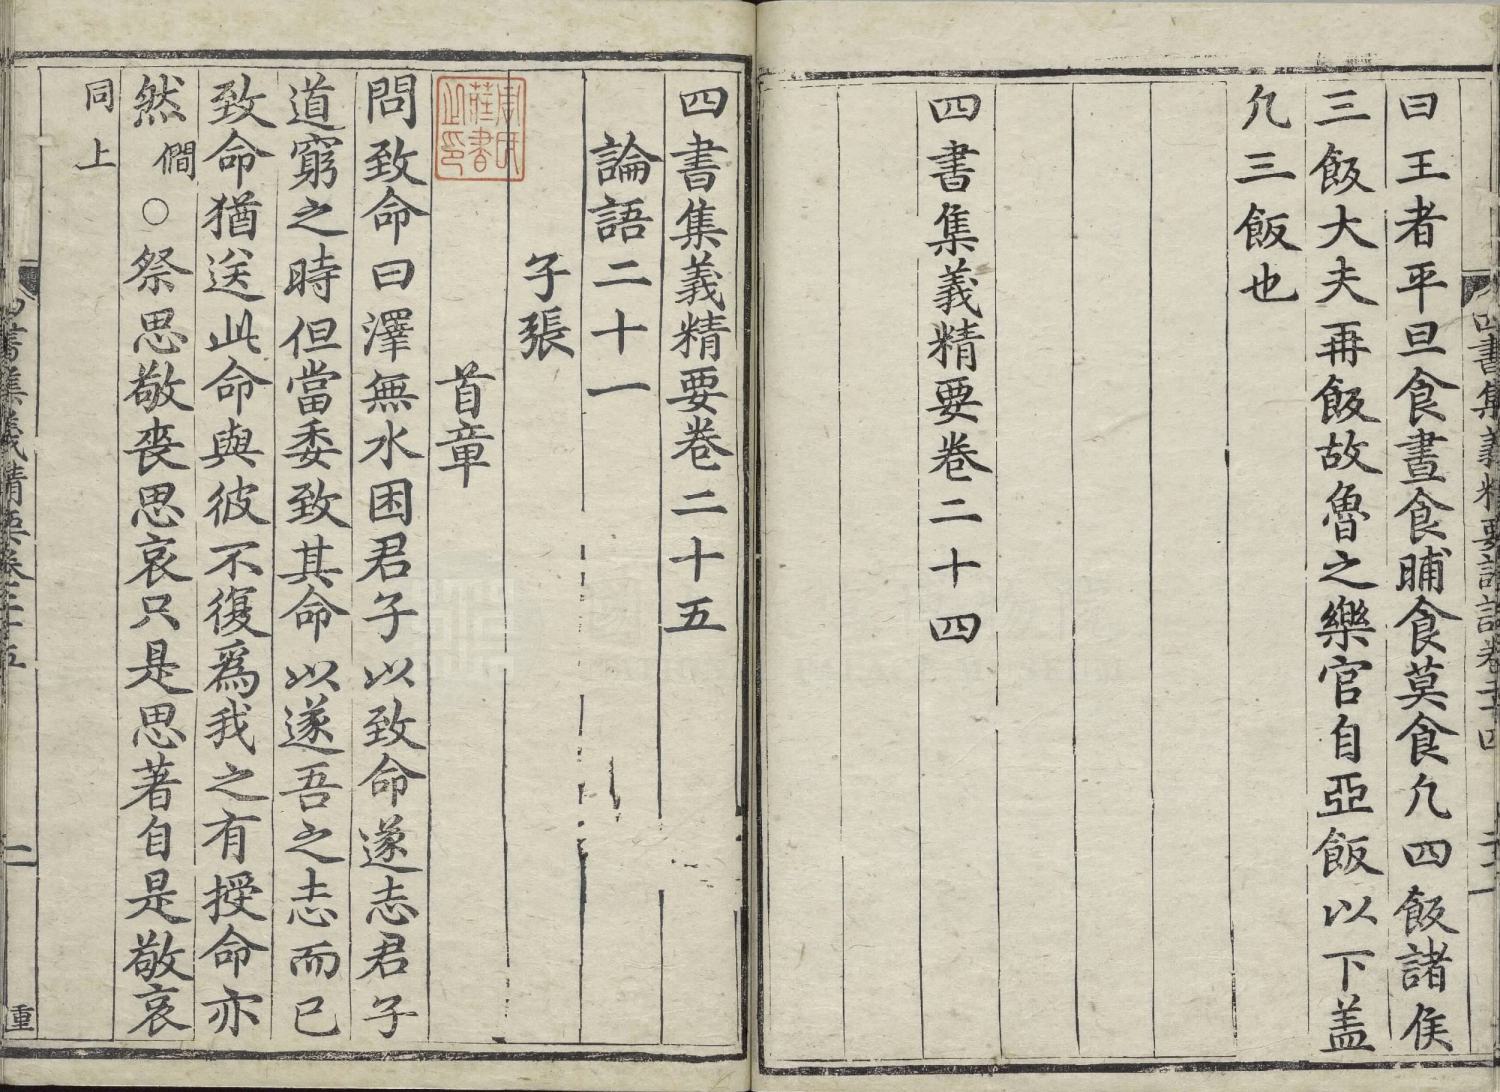 曰王者平旦食晝食晡食莫食凢四飯諸侯
三飯大夫再飯故魯之樂官自亞飯以下盖
凢三飯也
四書集義精要卷二十四
四書集義精要卷二十五
論語二十一
子張
首章
問致命曰澤無水困君子以致命遂志君子
道窮之時但當委致其命以遂吾之志而已
致命猶送此命與彼不復爲我之有授命亦
然僩○祭思敬喪思哀只是思著自是敬哀
同上
四書集義精要卷二十五
二
重